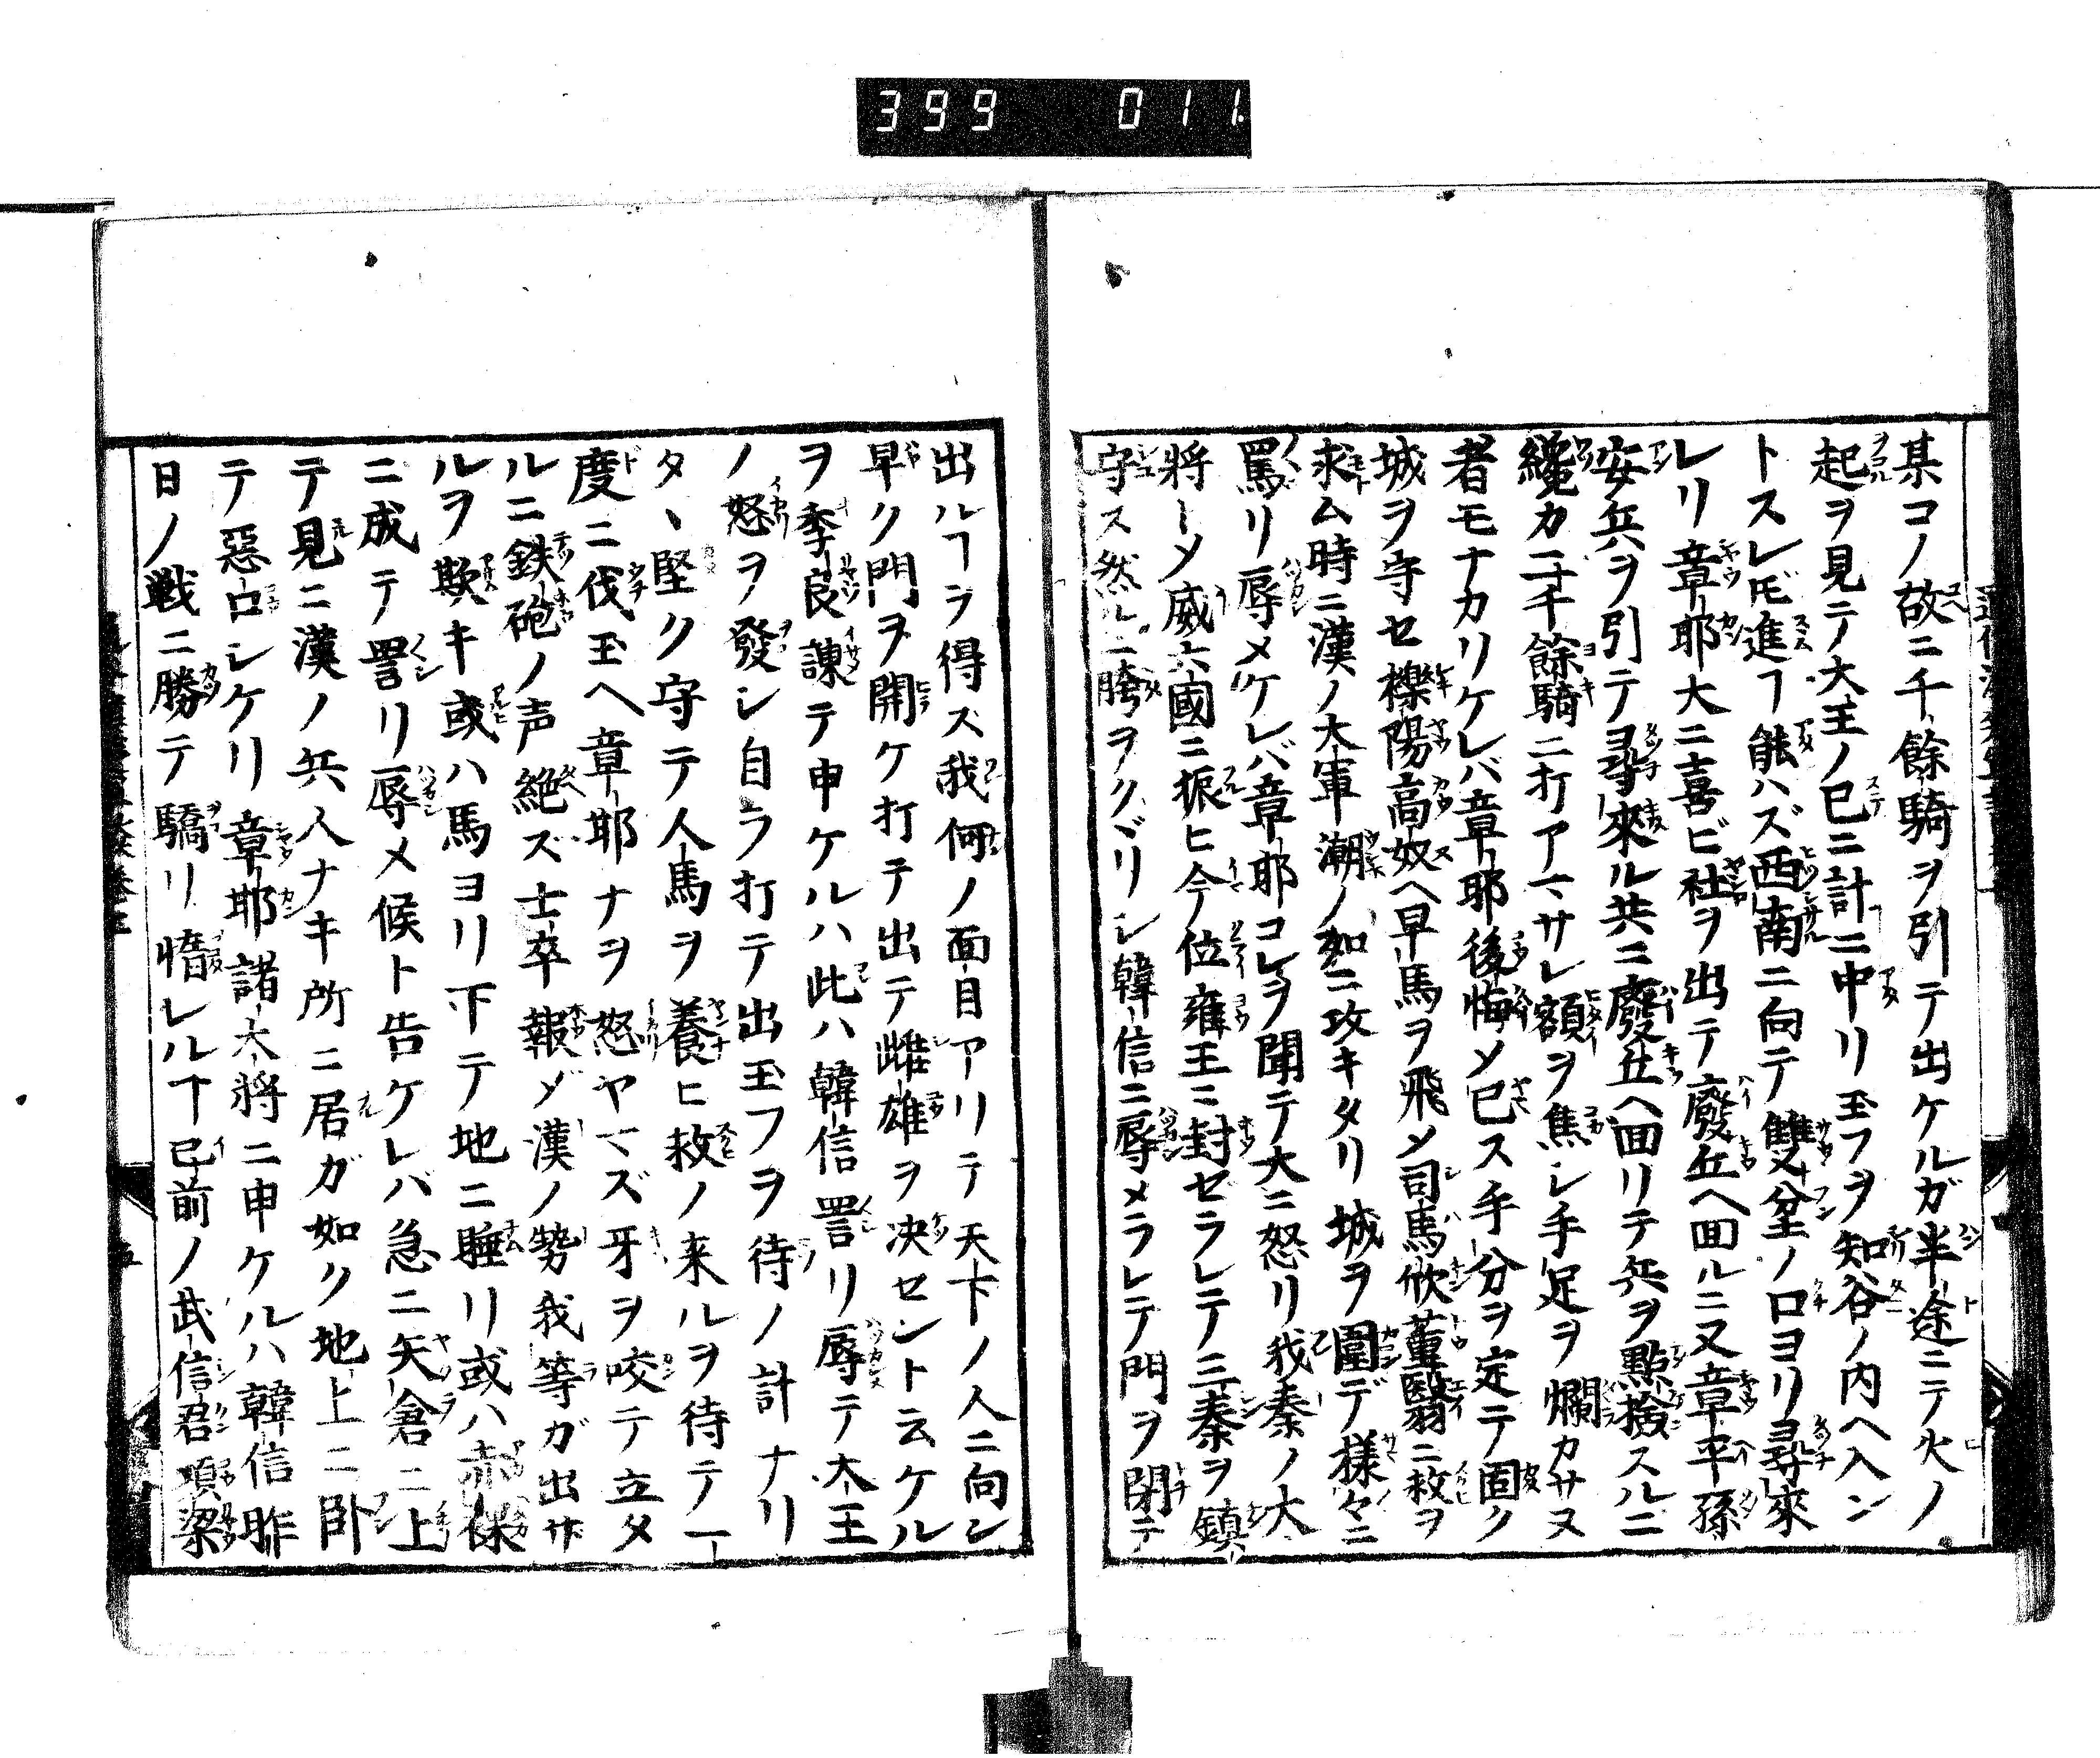 399 011
某コノ故ニ千餘騎ヲ引テ出ケルガ半途ニテ火ノ
起ヲ見テ大王ノ已ニ計ニ中リ玉フヲ知谷ノ内ヘ入ン
トスレ𪜈進ヿ能ハズ西南ニ向テ雙岔ノ口ヨリ尋來
レリ章耶大ニ喜ビ社ヲ出テ廢丘ヘ回ルニ又章平孫
安兵ヲ引テ尋來ル共ニ廢丘ヘ回リテ兵ヲ點撿スルニ
纔カ二千餘騎ニ打アマサレ額ヲ焦シ手足ヲ爛カサヌ
者モナカリケレバ章耶後悔メ已ス手分ヲ定テ固ク
城ヲ守セ櫟陽高奴ヘ早馬ヲ飛メ司馬欣董翳ニ救ヲ
求ム時ニ漢ノ大軍潮ノ如ニ攻キタリ城ヲ圍デ樣々ニ
罵リ辱メケレバ章耶コレヲ聞テ大ニ怒リ我秦ノ大
將トメ威六國ニ振ヒ今位雍王ニ封ゼラレテ三秦ヲ鎮
守ス然ルニ胯ヲクヾリシ韓信ニ辱メラレテ門ヲ閉テ
出ルヿヲ得ズ我何ノ面目アリテ天下ノ人ニ向ン
早ク門ヲ開ケ打テ出テ雌雄ヲ决セント云ケル
ヲ季良諌テ申ケルハ此ハ韓信詈リ辱テ大王
ノ怒ヲ發シ自ラ打テ出玉フヲ待ノ計ナリ
タヽ堅ク守テ人馬ヲ養ヒ救ノ来ルヲ待テ一
度ニ伐玉ヘ章耶ナヲ怒ヤマズ牙ヲ咬テ立タ
ルニ鉄砲ノ声絶ズ士卒報ダ漢ノ勢我等ガ出サ
ルヲ欺キ或ハ馬ヨリ下テ地ニ睡リ或ハ赤倮
ニ成テ詈リ辱メ候ト告ケレバ急ニ矢倉ニ上
テ見ニ漢ノ兵人ナキ所ニ居ガ如ク地上ニ卧
テ惡口シケリ章耶諸大將ニ申ケルハ韓信昨
日ノ戦ニ勝テ驕リ惰レルヿ已前ノ武信君項梁